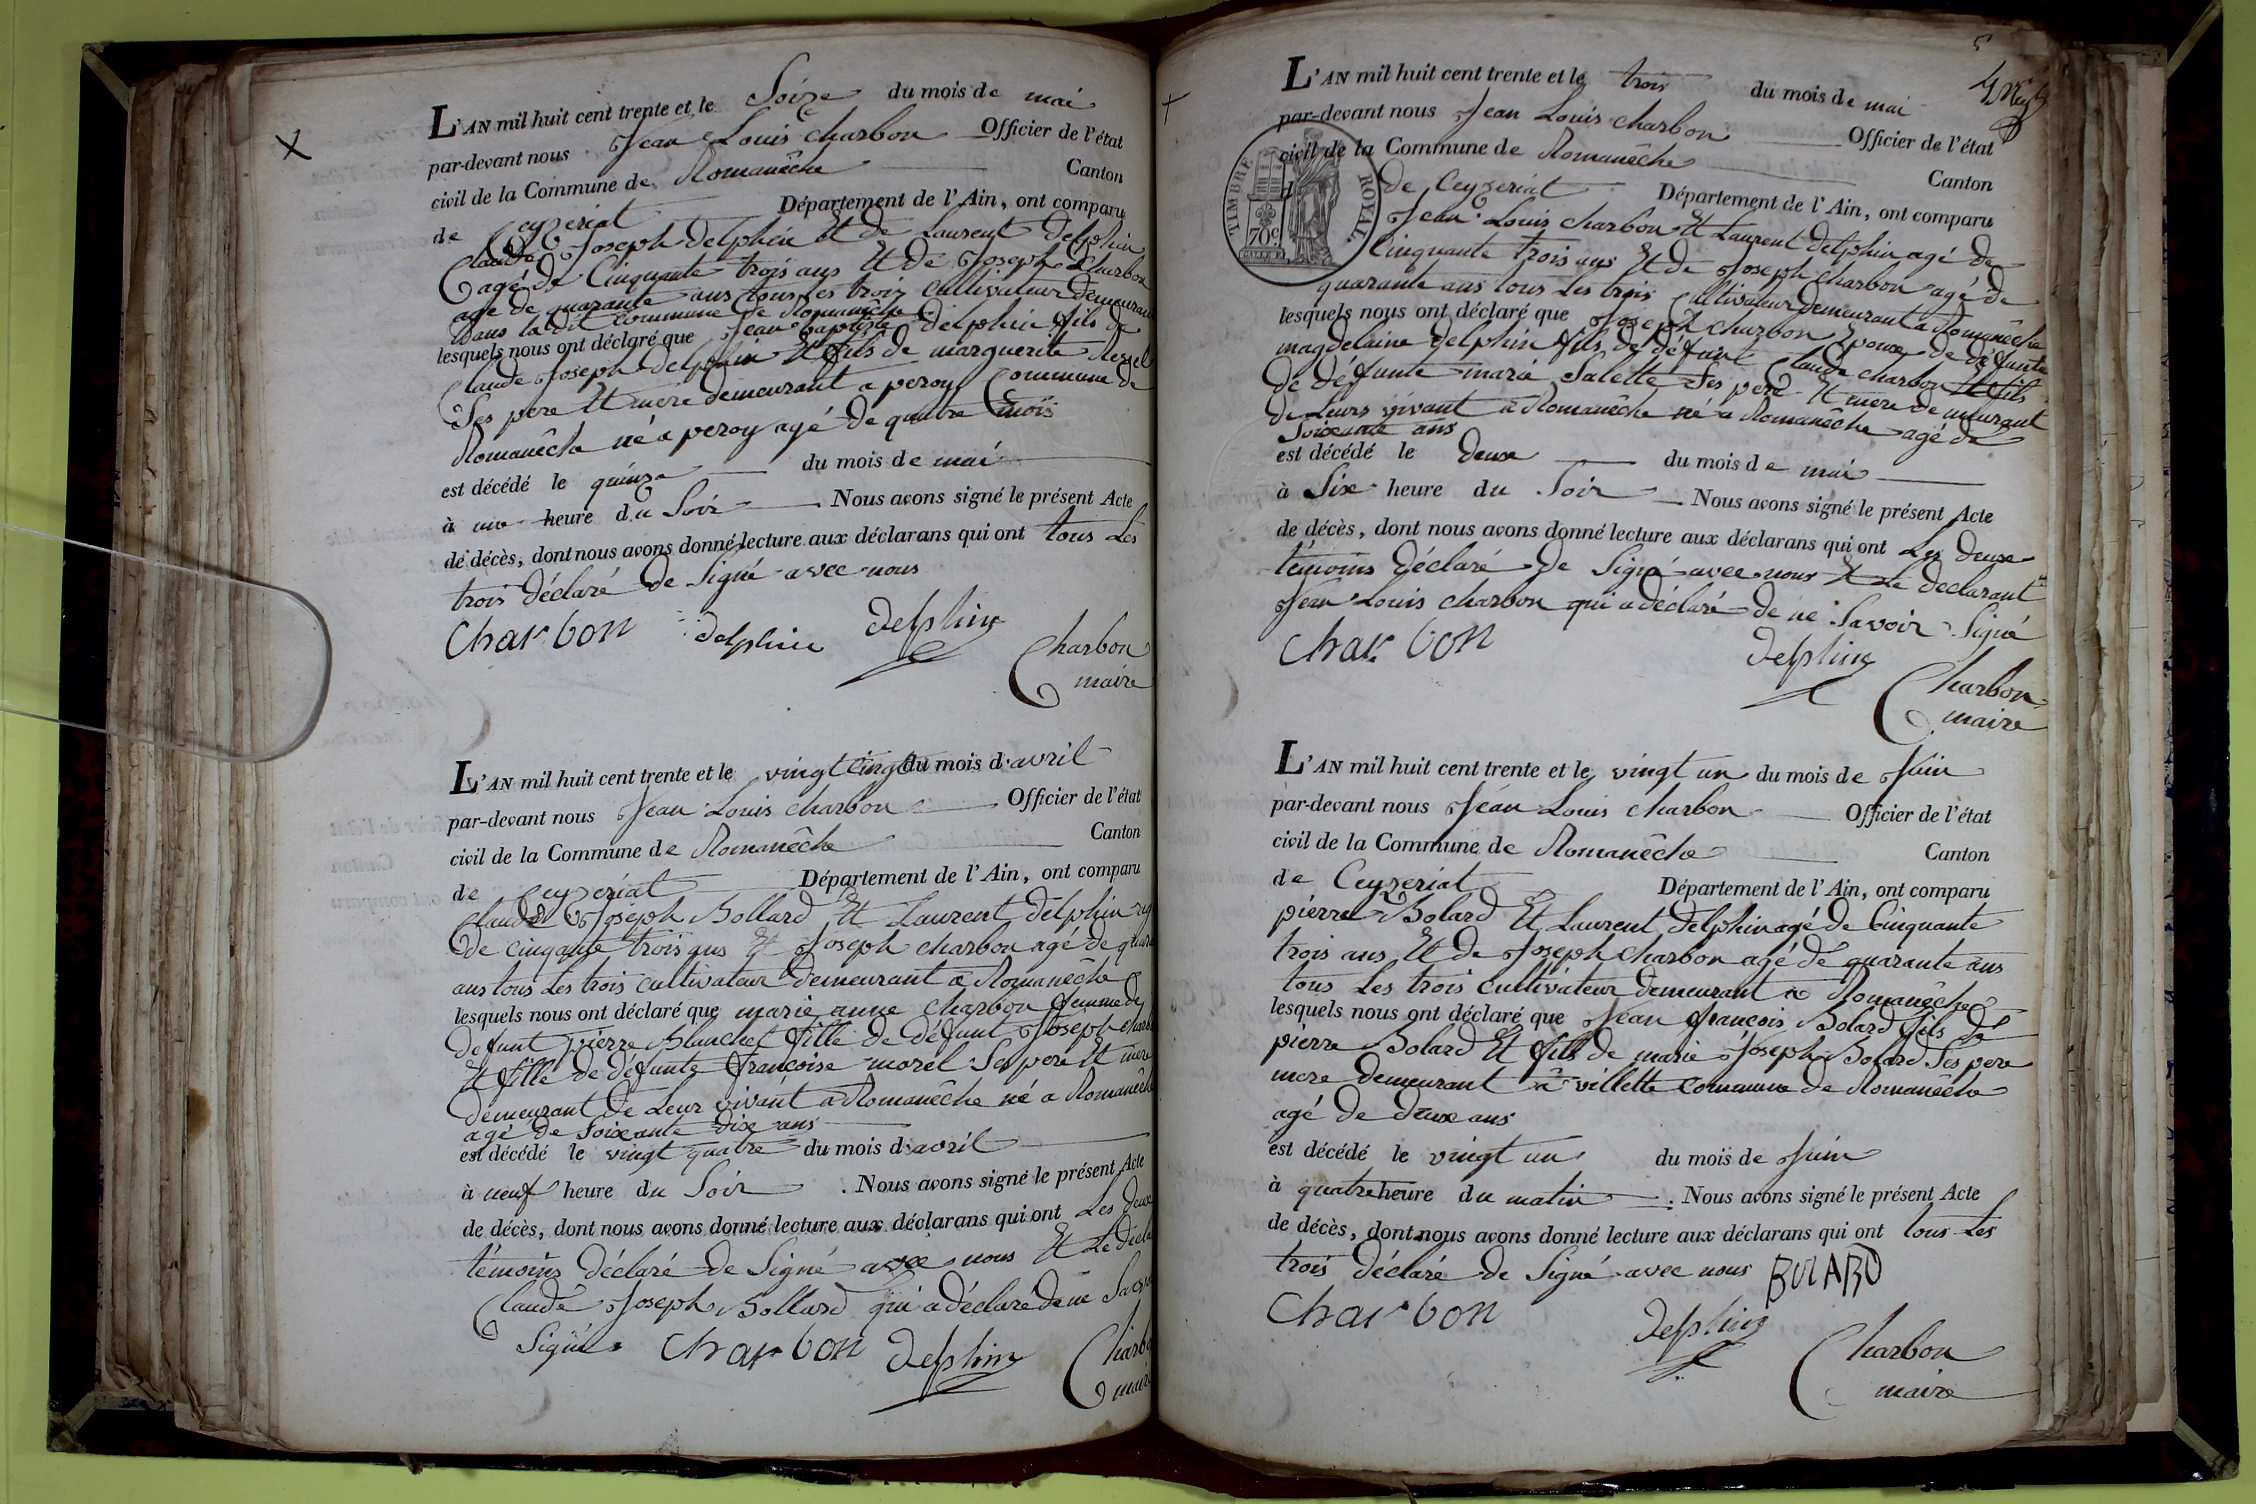 L'AN mil huit cent trente et le Soize du mois de mai
par-devant nous Jean Louis charbon Officier de l'état
civil de la Commune de Romanêche Canton
de Ceyzeriat Département de l'Ain, ont comparu
Claude Joseph Delphin Et de Laurent Delphin
agé de Cinquante trois ans Et de Joseph Charbon
agé de quarante ans tous Les trois cultivateur demeurant
Dans ladit Commune de Romanêche
lesquels nous ont déclaré que Jean baptiste Delphin fils de
Claude Joseph Delphin Et fils de marguerite
Ses pere Et mere demeurant a peroy Commune de
Romanêche né a peroy agé de quatre mois
est décédé le quinze du mois de mai
à une heure du Soir Nous avons signé le présent Acte
de décès, dont nous avons donné lecture aux déclarans qui ont tous Les
trois déclaré de Signé avec nous
Charbon Delphin Delphin Charbon
maire
L'AN mil huit cent trente et le vingt Cinq du mois d'avril
par-devant nous Jean Louis charbon Officier de l'état
civil de la Commune de Romanêche Canton
de Ceyzeriat Département de l'Ain, ont comparu
Claude Joseph Bollard Et Laurent Delphin
de cinquante trois ans Et Joseph charbon agé de
ans tous Les trois cultivateur Demeurant a Romanêche
lesquels nous ont déclaré que marie anne charbon femme de
defunt pierre Blanchet fille de défunt Joseph
Et fille de défunte françoise morel Ses pere Et mere
demeurant De Leur vivant a Romanêche né a Romanêche
agé de Soixante Dixe ans
est décédé le vingt quatre du mois d'avril
à neuf heure du Soir . Nous avons signé le présent Acte
de décès, dont nous avons donné lecture aux déclarans qui ont Les deux
témoins déclaré de Signé avec nous Et Le
Claude Joseph Bollard qui a déclaré de ne
Signé Charbon Delphin Charbon
maire
5
L'AN mil huit cent trente et le trois du mois de mai
par-devant nous Jean Louis charbon Officier de l'état
civil de la Commune de Romanêche Canton
de Ceyzeriat Département de l'Ain, ont comparu
TIMBRE ROYAL.
70c.
Jean Louis charbon Et Laurent Delphin agé de
Cinquante trois ans Et de Joseph charbon agé de
quarante ans tous Les trois Cultivateur demeurant a Romanêche
lesquels nous ont déclaré que Joseph charbon Epoux de défunte
magdelaine Delphin fils de défunt Claude charbon Et fils
de défunte marie Salette Ses pere Et mere demeurant
de Leurs vivant a Romanêche né a Romanêche agé de
Soixante ans
est décédé le deux du mois de mai
à Six heure du Soir Nous avons signé le présent Acte
de décès, dont nous avons donné lecture aux déclarans qui ont Les deux
témoins déclaré de Signé avec nous Et Le declarant
Jean Louis charbon qui a déclaré de ne Savoir Signé
Charbon Delphin Charbon
maire
L'AN mil huit cent trente et le vingt un du mois de Juin
par-devant nous Jean Louis charbon Officier de l'état
civil de la Commune de Romanêche Canton
de Ceyzeriat Département de l'Ain, ont comparu
pierre Bolard Et Laurent Delphin agé de Cinquante
trois ans Et de Joseph charbon agé de quarante ans
tous Les trois cultivateur demeurant a Romanêche
lesquels nous ont déclaré que Jean françois Bolard fils de
pierre Bolard Et fils de marie Joseph Bolard Ses pere
mere demeurant a villette commune de Romanêche
agé de deux ans
est décédé le vingt un du mois de Juin
à quatre heure du matin . Nous avons signé le présent Acte
de décès, dont nous avons donné lecture aux déclarans qui ont tous Les
trois déclaré de Signé avec nous BOLARD
Charbon Delphin Charbon
maire